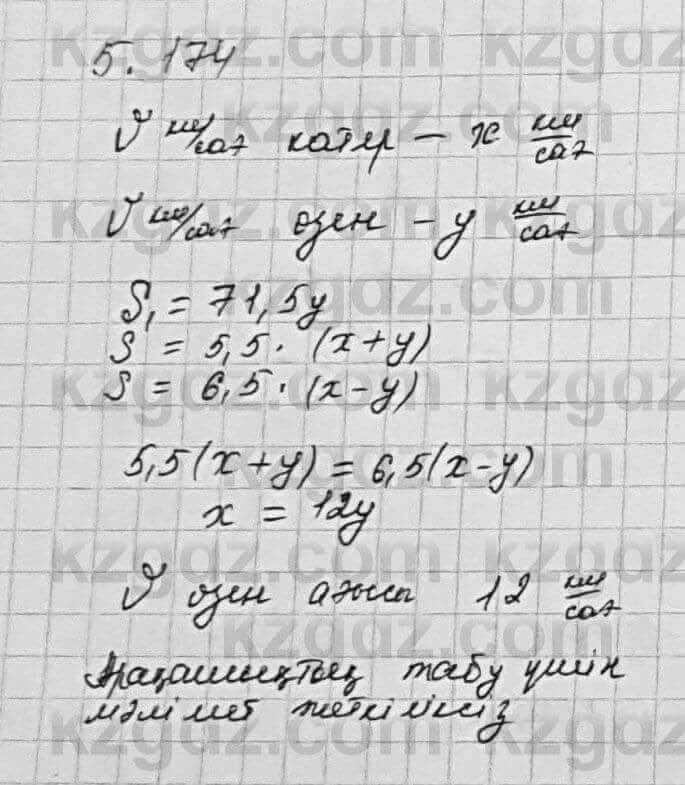 5.174
V км/сағ катер – x км/сағ
V км/сағ өзен – y км/сағ
S₁ = 71,5y
S = 5,5 · (x+y)
S = 6,5 · (x-y)
5,5(x+y) = 6,5(x-y)
x = 12y
V өзен ағысы 12 км/сағ
Арақашықтық табу үшін
мәлімет жеткіліксіз